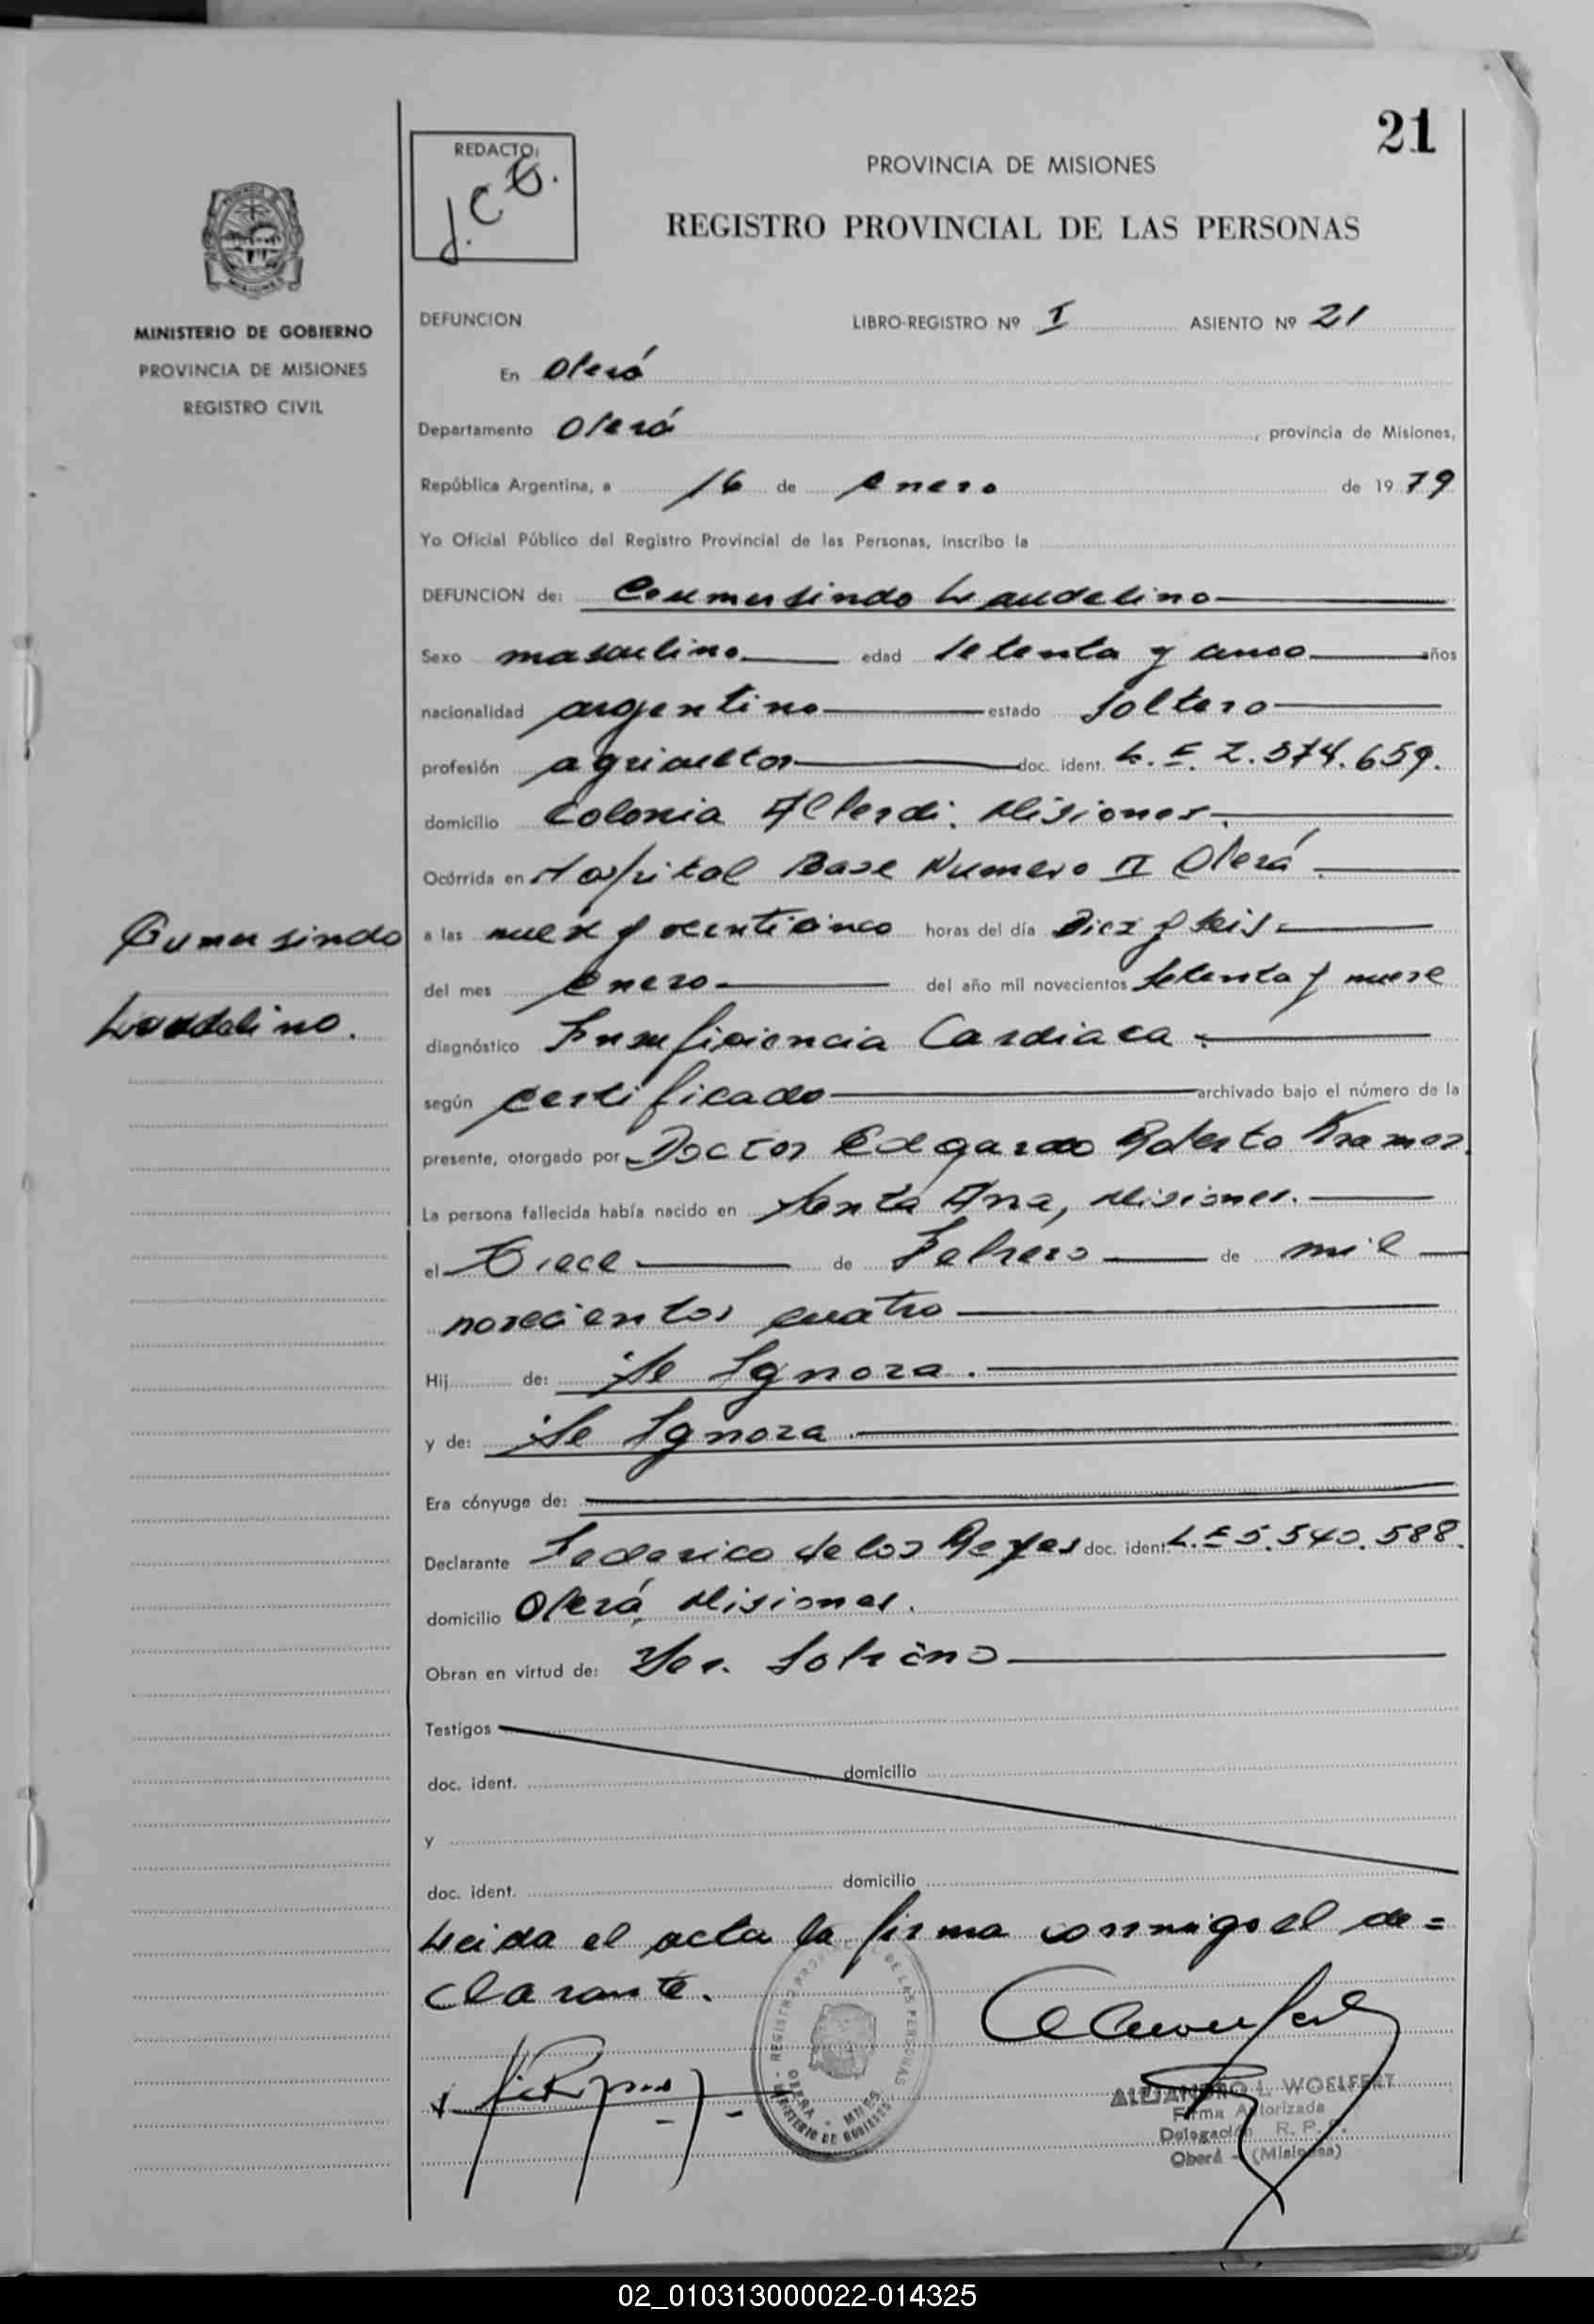 21
REDACTO:
J.C.G.
PROVINCIA DE MISIONES
REGISTRO PROVINCIAL DE LAS PERSONAS
MINISTERIO DE GOBIERNO
PROVINCIA DE MISIONES
REGISTRO CIVIL
DEFUNCION LIBRO-REGISTRO Nº I ASIENTO Nº 21
En Oberá
Departamento Oberá, provincia de Misiones,
República Argentina, a 16 de enero de 1979
Yo Oficial Público del Registro Provincial de las Personas, inscribo la
DEFUNCION de: Gumersindo Laudelino
Sexo masculino edad setenta y cinco años
nacionalidad argentino estado soltero
profesión agricultor doc. ident. L.E. 2.574.659.
domicilio Colonia Alberdi. Misiones.
Ocúrrida en Hospital Base Numero II Oberá.
Gumersindo
Laudelino.
a las nueve y veinticinco horas del día Diez y seis.
del mes enero del año mil novecientos setenta y nueve
diagnóstico Insuficiencia Cardiaca.
según certificado archivado bajo el número de la
presente, otorgado por Doctor Edgardo Roberto Kramer.
La persona fallecida había nacido en Santa Ana, Misiones.
el Trece de Febrero de mil
novecientos cuatro
Hij de: Se Ignora.
y de: Se Ignora.
Era cónyuge de:
Declarante Federico de los Reyes doc. ident. L.E 5.540.588.
domicilio Oberá, Misiones.
Obran en virtud de: Ser. Sobrino
Testigos
doc. ident. domicilio
y
doc. ident. domicilio
Leida el acta la firma conmigo el de=
clarante.
REGISTRO PROVINCIAL DE LAS PERSONAS
OBERA - MNES
MINISTERIO DE GOBIERNO
ALEJANDRO L. WOELFERT
Firma Autorizada
Delegación R. P. P.
Oberá - (Misiones)
02_010313000022-014325